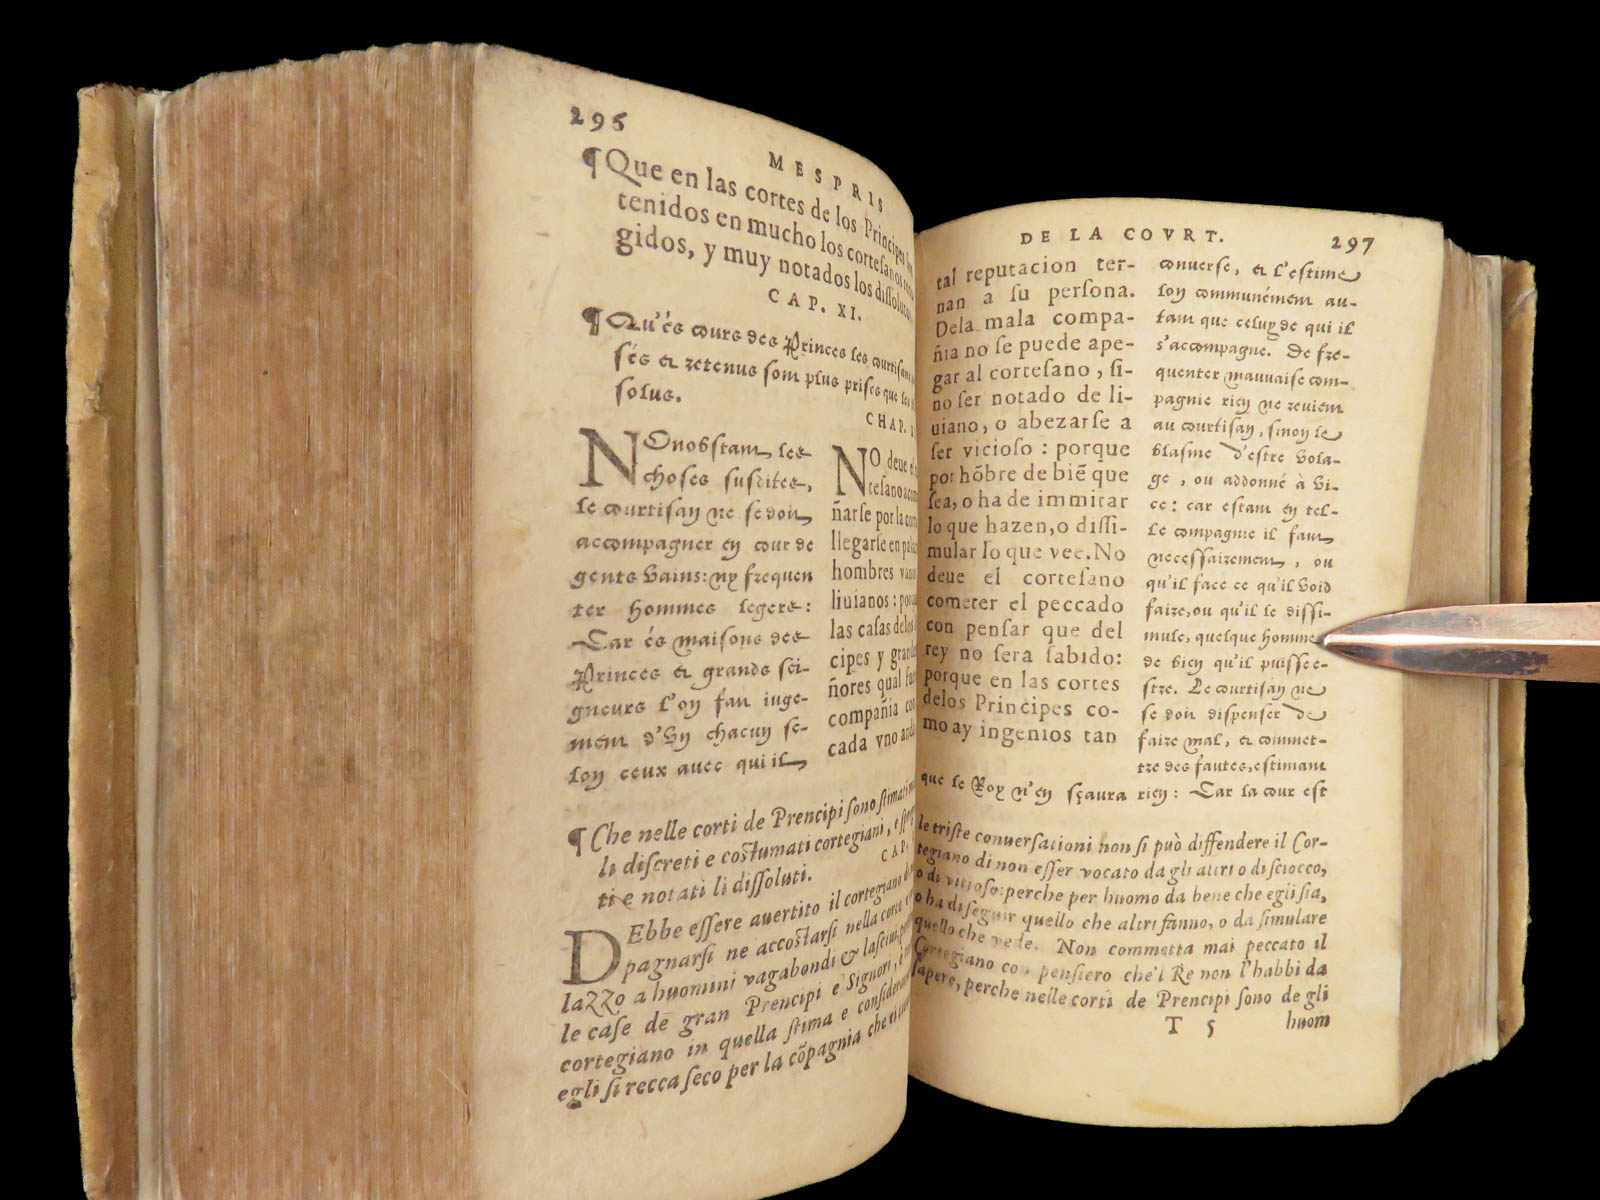 296
MESPRIS
¶Que en las cortes de los Principes
tenidos en mucho los cortesanos
gidos, y muy notados los dissolutos.
CAP. XI.
¶Qu'és cours des Princes les courtisans
sés et retenus sont plus prisés que les
solus.
CHAP.
NOnobstant les
choses susdites,
le courtisan ne se doit
accompagner en cour de
gents vains: ny frequen
ter hommes legers:
Car és maisons des
Princes et grands sei-
gneurs l'on fait iuge-
ment d'vn chacun se-
lon ceux avec qui il
NO deue el
cortesano
ñarse por la
llegarse en
hombres vanos
liuianos:
las casas de los
cipes y grandes
ñores qual
compañia
cada vno
¶Che nelle corti de Prencipi sono stimati
li discreti e costumati cortegiani, e
ti e notati li dissoluti.
CAP.
DEbbe essere auertito il cortegiano
pagnarsi ne accostarsi nella corte
lazzo a huomini vagabondi & lasciui,
le case de gran Prencipi e Signori,
cortegiano in quella stima e
egli si recca seco per la cõpagnia che
DE LA COVRT.
297
tal reputacion ter-
nan a su persona.
Dela mala compa-
ñia no se puede ape-
gar al cortesano, si-
no ser notado de li-
uiano, o abezarse a
ser vicioso: porque
por hõbre de biẽ que
sea, o ha de immitar
lo que hazen, o dissi-
mular lo que vee. No
deue el cortesano
cometer el peccado
con pensar que del
rey no sera sabido:
porque en las cortes
delos Principes co-
mo ay ingenios tan
converse, et l'estime
lon communément au-
tant que celuy de qui il
s'accompagne. De fre-
quenter mauvaise com-
pagnie rien ne revient
au courtisan, sinon le
blasme d'estre vola-
ge, ou addonné à vi-
ce: car estant en tel-
le compagnie il faut
necessairement, ou
qu'il face ce qu'il void
faire, ou qu'il le dissi-
mule, quelque homme
de bien qu'il puisse e-
stre. Le courtisan ne
se doit dispenser de
faire mal, et commet-
tre des fautes, estimant
que le Roy n'en sçaura rien: Car la cour est
le triste conuersationi non si può diffendere il Cor-
tegiano di non esser vocato da gli altri o di sciocco,
o di vitioso: perche per huomo da bene che egli sia,
o ha di seguir quello che altri fanno, o da simulare
quello che vede. Non commetta mai peccato il
Cortegiano con pensiero che'l Re non l'habbi da
sapere, perche nelle corti de Prencipi sono de gli
T 5
huom